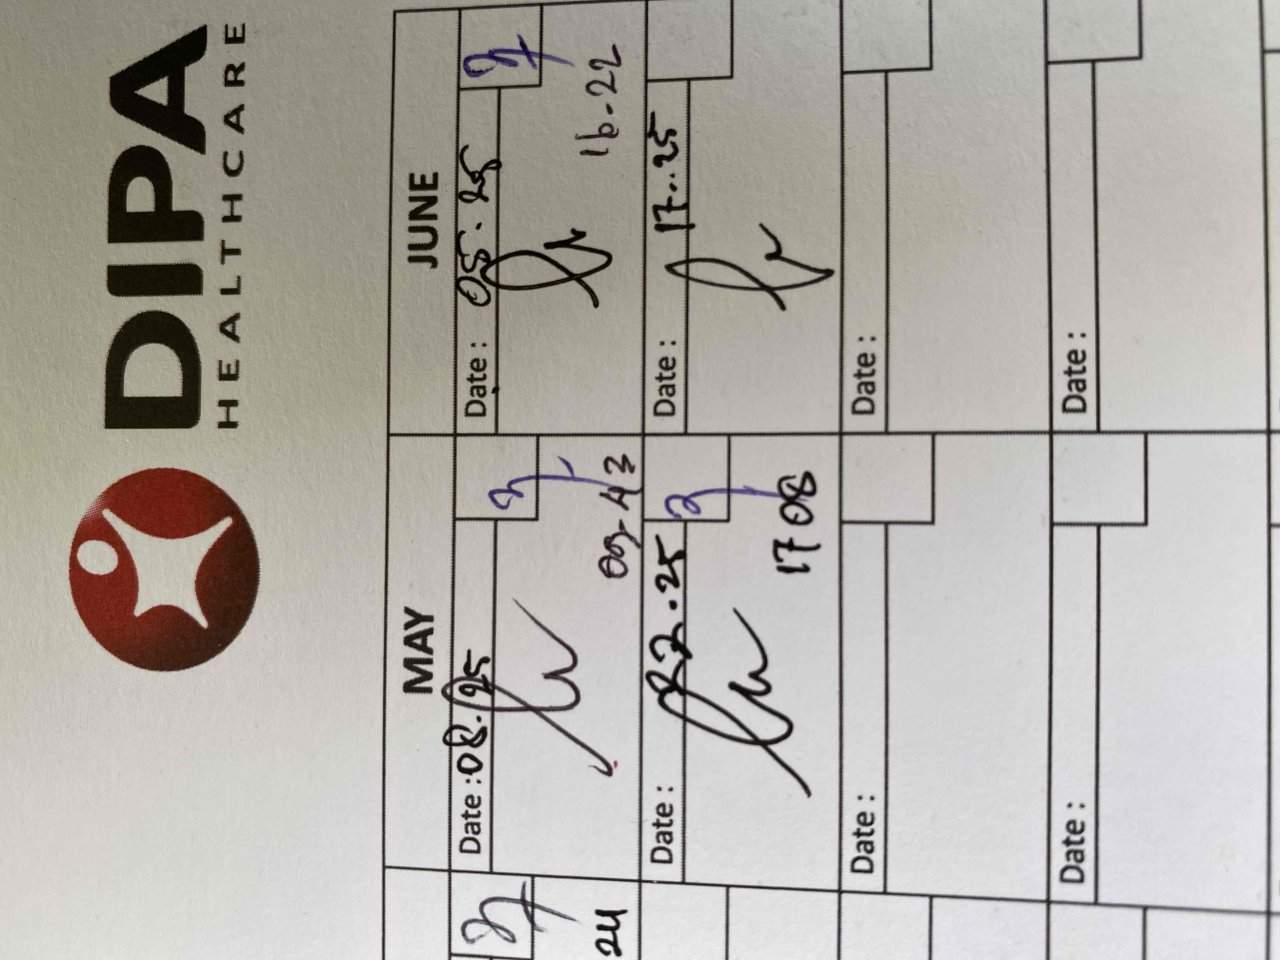 DIPA
HEALTHCARE
MAY
JUNE
Date : 08.25
Date : 05.25
09-43
16-22
24
Date : 22.25
Date : 17..25
17 08
Date :
Date :
Date :
Date :